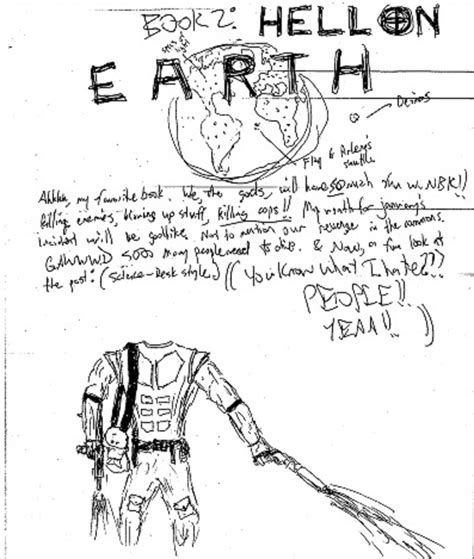 BOOK 2: HELL ON
EARTH
Deimos
Fly &
shuttle
Ahhhh, my favorite book. We, the gods, will have so much fun w NBK!!
killing enemies, blowing up stuff, killing cops!! My wrath for january's
incident will be godlike. Not to mention our revenge in the commons.
GAWWWD sooo many people need to die. & Now, a fun look at
the past: (science-desk style) ((You know what I hate??
PEOPLE!!
YEAA!! ))